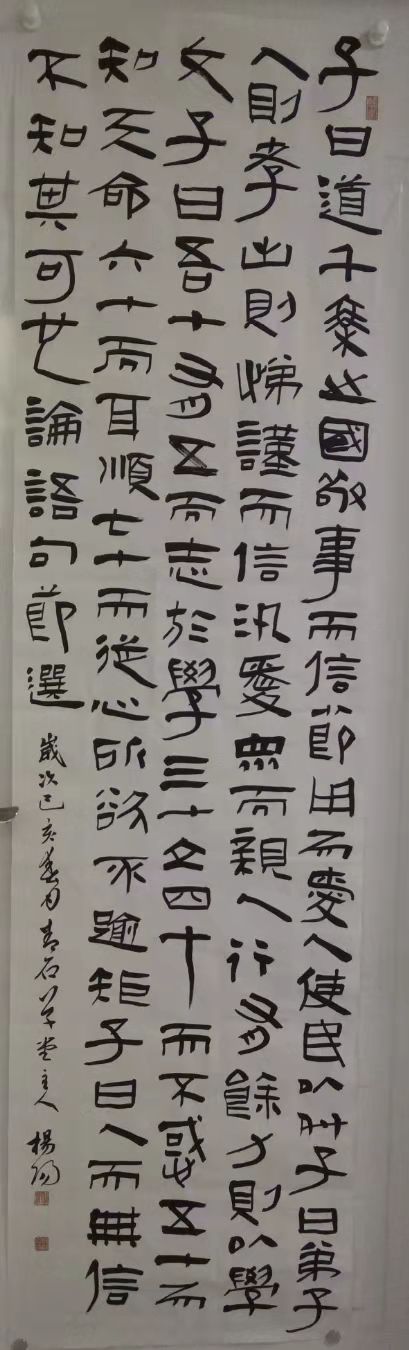 子曰道千乘之國敬事而信節用而愛人使民以時子曰弟子
入則孝出則悌謹而信汎愛眾而親人行有餘力則以學
文子曰吾十有五而志於學三十文四十而不惑五十而
知天命六十而耳順七十而從心所欲不逾矩子曰人而無信
不知其可也論語句節選
歲次己亥春月青石草堂主人楊